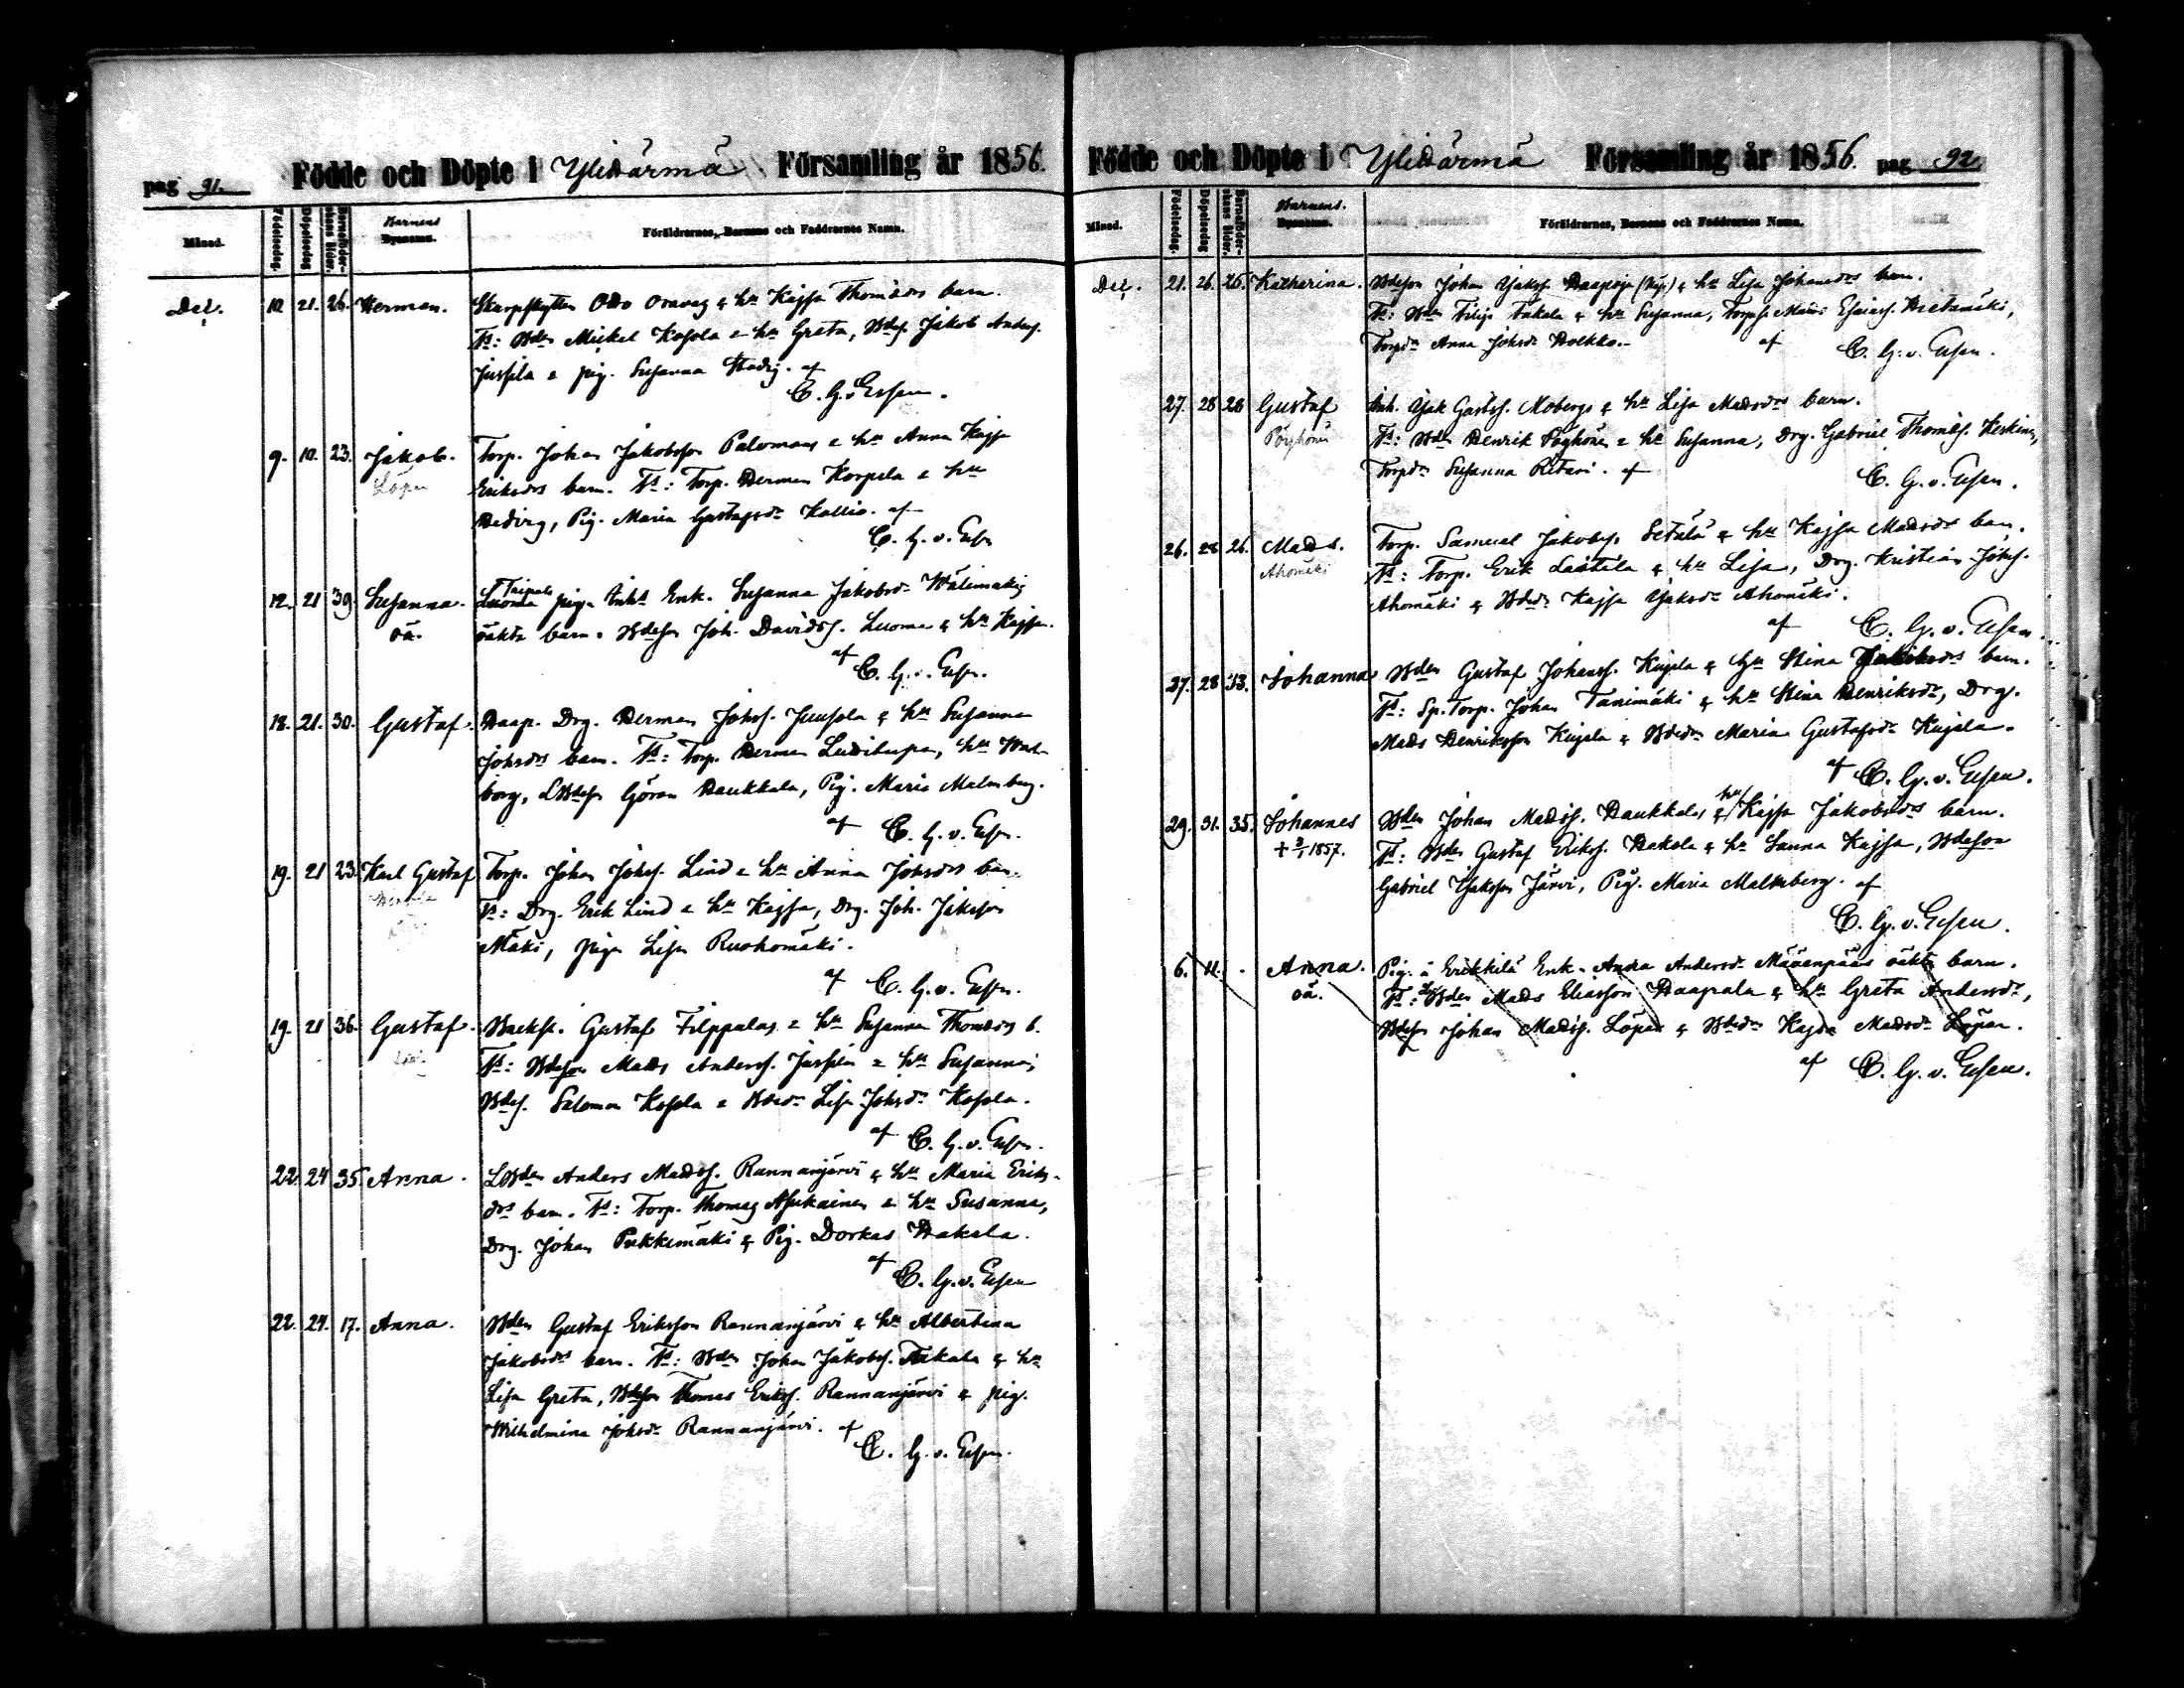 pag 91. Födde och Döpte i Ylihärmä Församling år 1856.
Månad. Födelsedag. Döpelsedag Barnaföderskans ålder. Barnens Bynamn. Föräldrarnes, Barnens och Faddrarnes Namn.
Dec. 10. 21. 26. Herman. Skarpskytten Odo Oravas & hu Kajsa Thomasdrs barn.
Fd: Bden Mickel Kosola & hu Greta, Bdes. Jakob Anders.
Jussila & pig. Susanna Hedvig. af
C. G. v. Essen.
9. 10. 23. Jakob. Torp. Johan Jakobsson Palomans & hu Anna Kajsa
Löpen Eriksdrs barn. Fd: Torp. Herman Korpela & hu
Hedvig, Pig. Maria Gustafsdr Kallio. af
C. G. v. Essen
12. 21 39. Susanna. Luoma Taipale pig. Inhs Enk. Susanna Jakobsdr Wälimäkis
oä. oäkta barn. Bdeson Joh. Davidss. Luoma & hu Kajsa.
af
C. G. v. Essen.
18. 21. 30. Gustaf. Haap. Drg. Herman Johss. Juusola & hu Susanna
Johsdrs barn. Fd: Torp. Herman Ludilupa, hu Wal-
borg, LBdes Göran Haukkala, Pig. Maria Malmberg.
af C. G. v. Essen.
19. 21 23. Karl Gustaf Torp. Johan Johss. Lind & hu Anna Johsdrs barn.
Fd: Drg. Erik Lind & hu Kajsa, Drg. Joh. Jaksson
Mäki, pigan Lisa Ruohomäki.
af C. G. v. Essen.
19. 21 36. Gustaf. Backst. Gustaf Filppulas & hu Susanna Thomasdrs b.
Fd: Bdeson Mads Anderss. Jussila & hu Susanna,
Bdes. Salomon Kosola & Bdedr Lisa Johsdr Kosola.
af C. G. v. Essen.
22. 24 35. Anna. LBden Anders Madss. Rannanjärvi & hu Maria Eriks-
drs barn. Fd: Torp. Thomas Asukainen & hu Susanna,
Drg. Johan Pukkimäki & Pig. Dorkas Hakala.
af
C. G. v. Essen
22. 24. 17. Anna. Bden Gustaf Eriksson Rannanjärvi & hu Albertina
Jakobsdrs barn. Fd: Bden Johan Jakobss. Takala & hu
Lisa Greta, Bdeson Thomas Erikss. Rannanjärvi & pig.
Wilhelmina Johsdr Rannanjärvi. af
C. G. v. Essen.
Födde och Döpte i Ylihärmä Församling år 1856. pag 92
Månad. Födelsedag. Döpelsedag Barnaföderskans ålder. Barnens. Bynamn. Föräldrarnes, Barnens och Faddrarnes Namn.
Dec. 21. 26. 26. Katharina. Bdeson Johan Jakss. Haapoja & hu Lisa Johansdrs barn.
Fd: Bden Filip Takala & hu Susanna, Torps. Mats Esaiass. Hietamäki,
Torpdr Anna Johsdr Holkko. af C. G. v. Essen.
27. 28 28 Gustaf Inh. Jak Gustss. Mobergs & hu Lisa Madsdrs barn.
Pöyhönen Fd: Bden Henrik Pöyhönen & hu Susanna, Drg. Gabriel Thomass. Keskinen,
Torpdr Susanna Ritari. af
C. G. v. Essen.
26. 28 26. Mads. Torp. Samuel Jakobss. Setälä & hu Kajsa Madsdrs barn.
Ahomäki Fd: Torp. Erik Laitila & hu Lisa, Drg. Kristian Johss.
Ahomäki & Bdedr Kajsa Jaksdr Ahomäki.
af C. G. v. Essen.
27. 28 33. Johanna Bden Gustaf Johanss. Kujala & hu Stina Jakobsdrs barn.
Fd: Sp. Torp. Johan Tanimäki & hu Stina Henriksdr, Drg.
Mads Henriksson Kujala & Bdedr Maria Gustafsdr Kujala.
af C. G. v. Essen.
29. 31. 35. Johannes Bden Johan Madss. Haukkalas & hu Kajsa Jakobsdrs barn.
+ 3/1 1857. Fd: Bden Gustaf Erikss. Hakola & hu Sanna Kajsa, Bdeson
Gabriel Jaksson Järvi, Pig. Maria Malmberg. af
C. G. v. Essen.
6. 11. - Anna. Pig. å Erikkilä Enk. Anna Andersdr Mäuenpääs oäkta barn.
oä. Fd: LBden Mads Eliasson Haapala & hu Greta Andersdr,
Bdeson Johan Madss. Löpen & Bdedr Kajsa Madsdr Löpen.
af C. G. v. Essen.